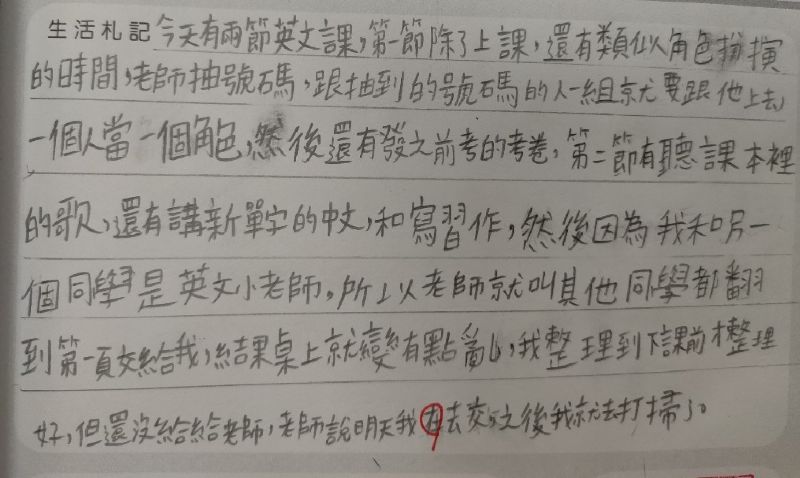 生活札記 今天有兩節英文課,第一節除了上課,還有類似角色扮演
的時間,老師抽號碼,跟抽到的號碼的人一組就要跟他上去
一個人當一個角色,然後還有發之前考的考卷,第二節有聽課本裡
的歌,還有講新單字的中文,和寫習作,然後因為我和另一
個同學是英文小老師,所以老師就叫其他同學都翻
到第一頁交給我,結果桌上就變有點亂,我整理到下課前才整理
好,但還沒給給老師,老師說明天我再去交,之後我就去打掃了。